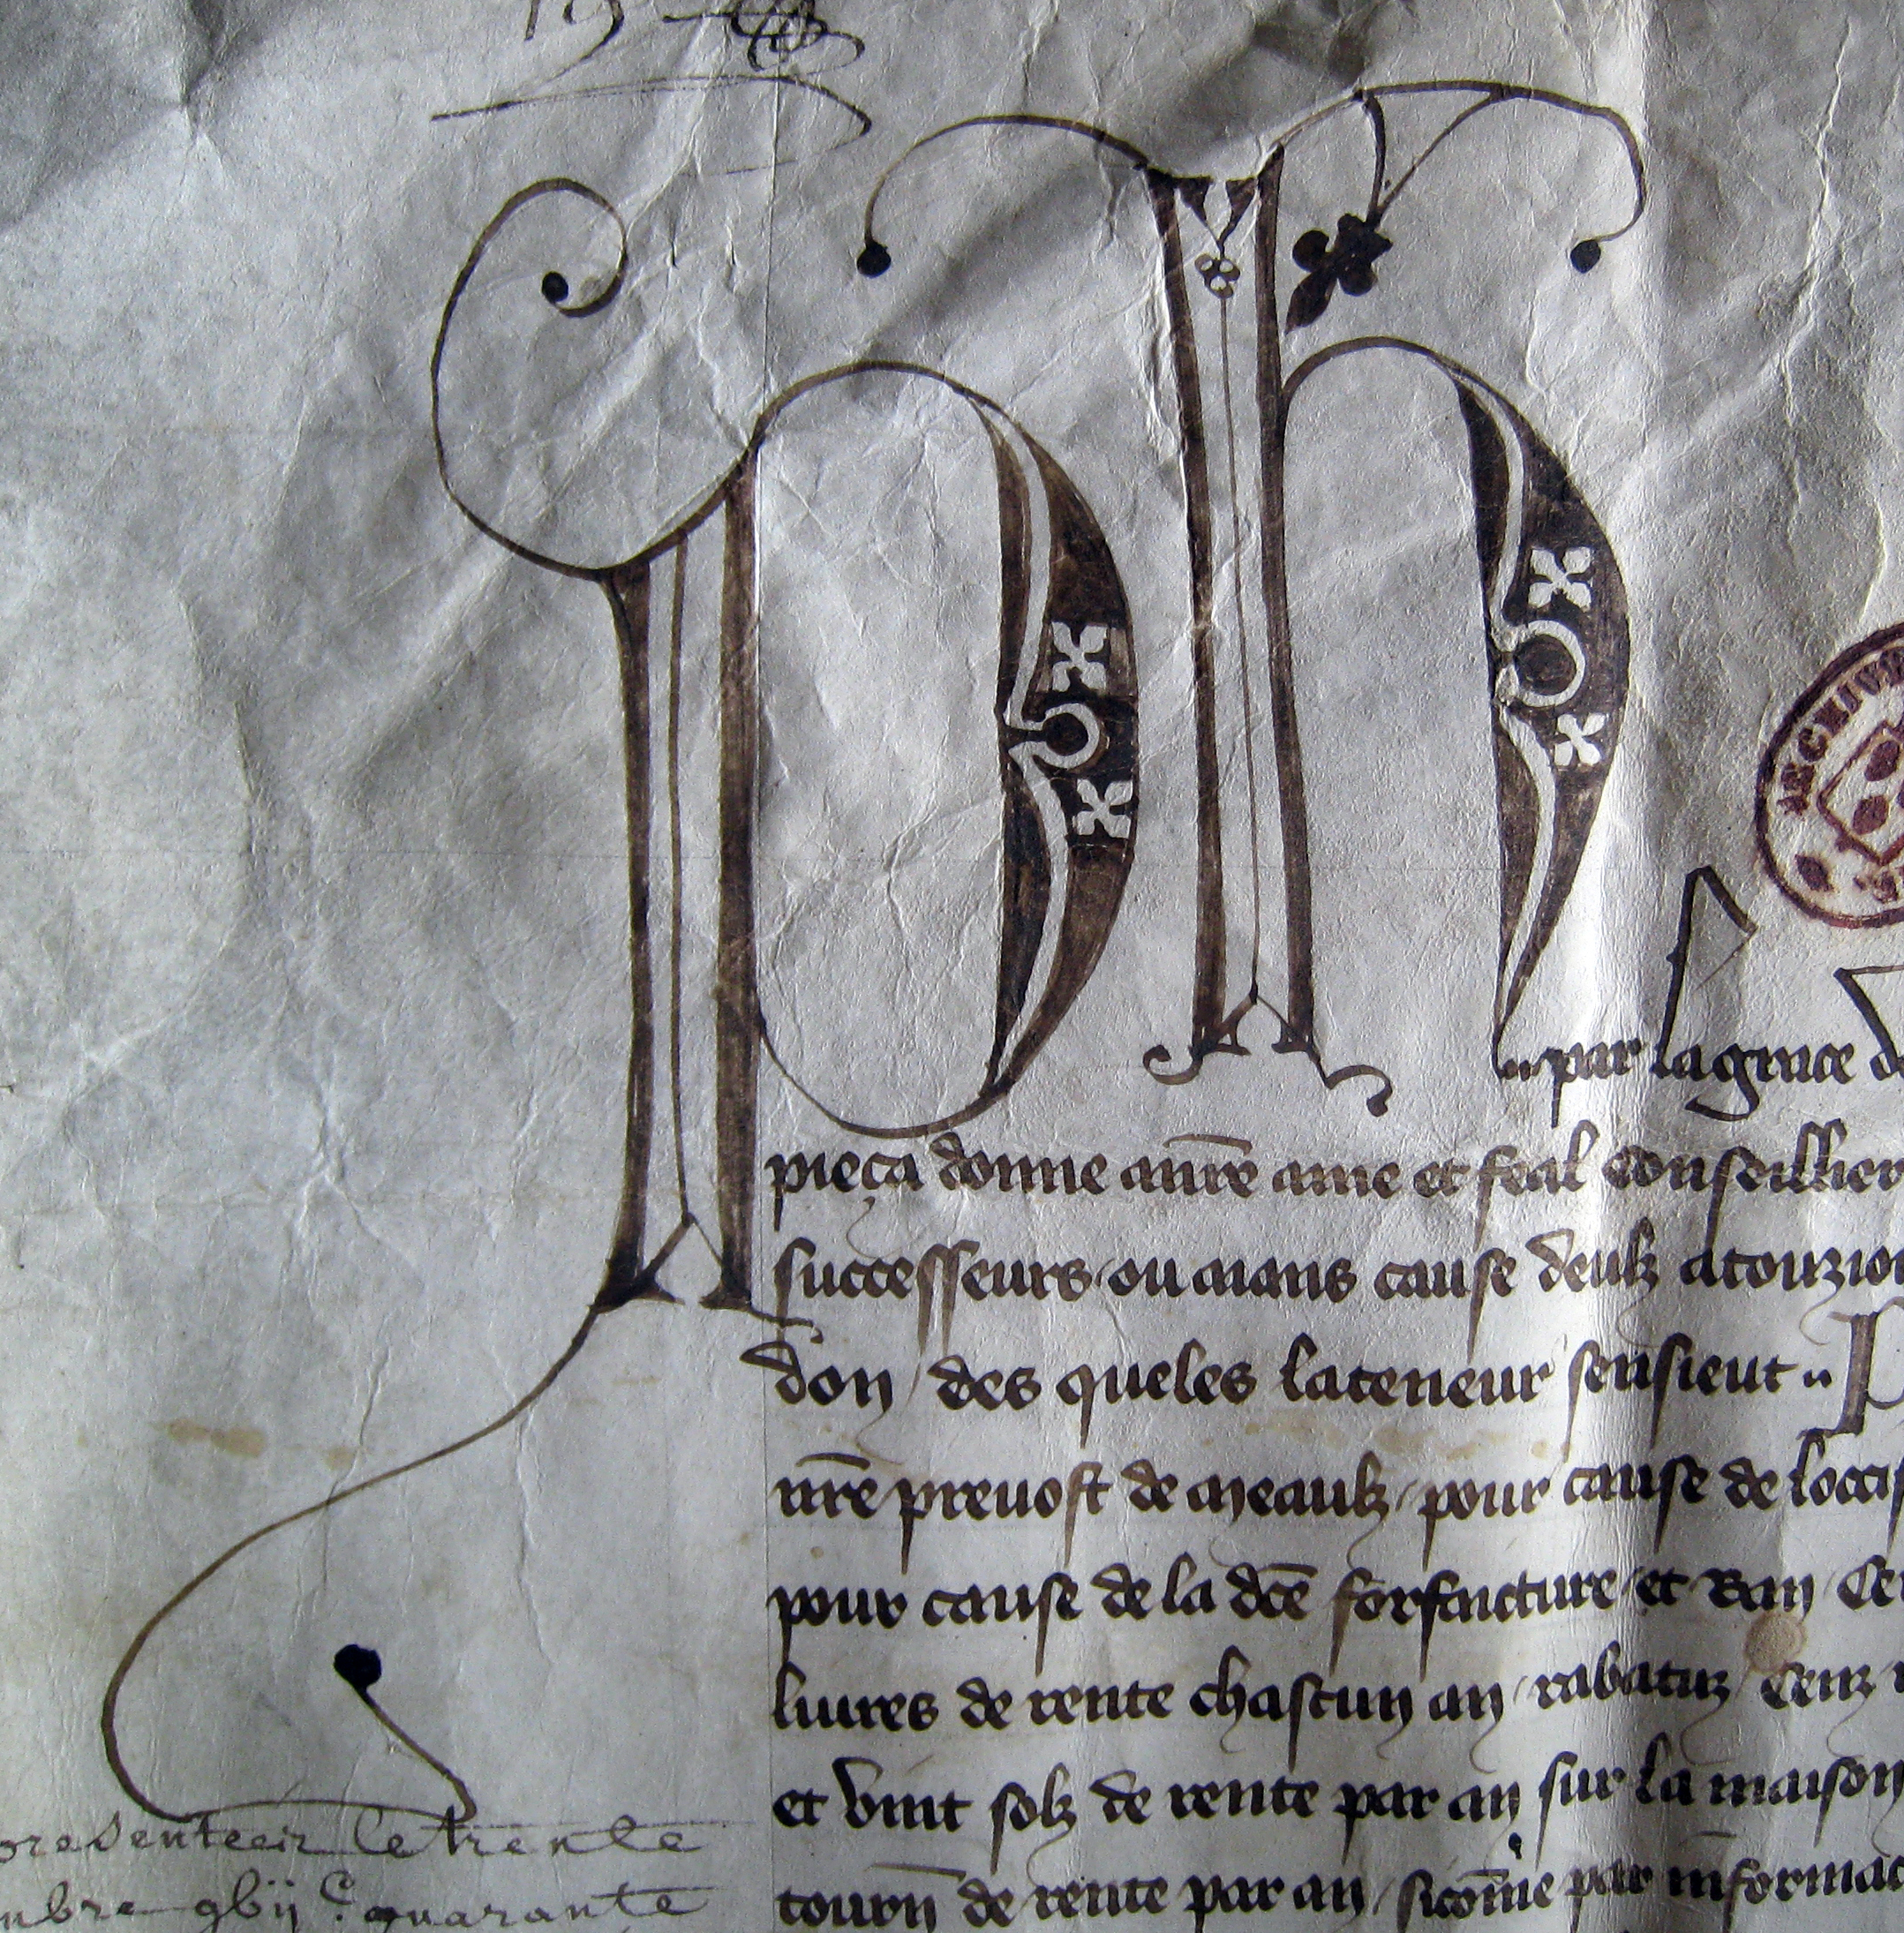 Ph
par la grace de
pieça donne a nr̄e ame et feal conseillier
successeurs ou aians cause deulx a touzio
don / des queles la teneur sensieut
nr̄e prevost de Meaulx / pour cause de
pour cause de la dc̄e forfaicture et Ban / Ce
livres de rente chascun an / rabatuz
et vint solz de rente par an sur la maison
tourn̄ de rente par an / sicōme par informac
ARCHIV
presenteeir le trente
mbre gbij c quarante